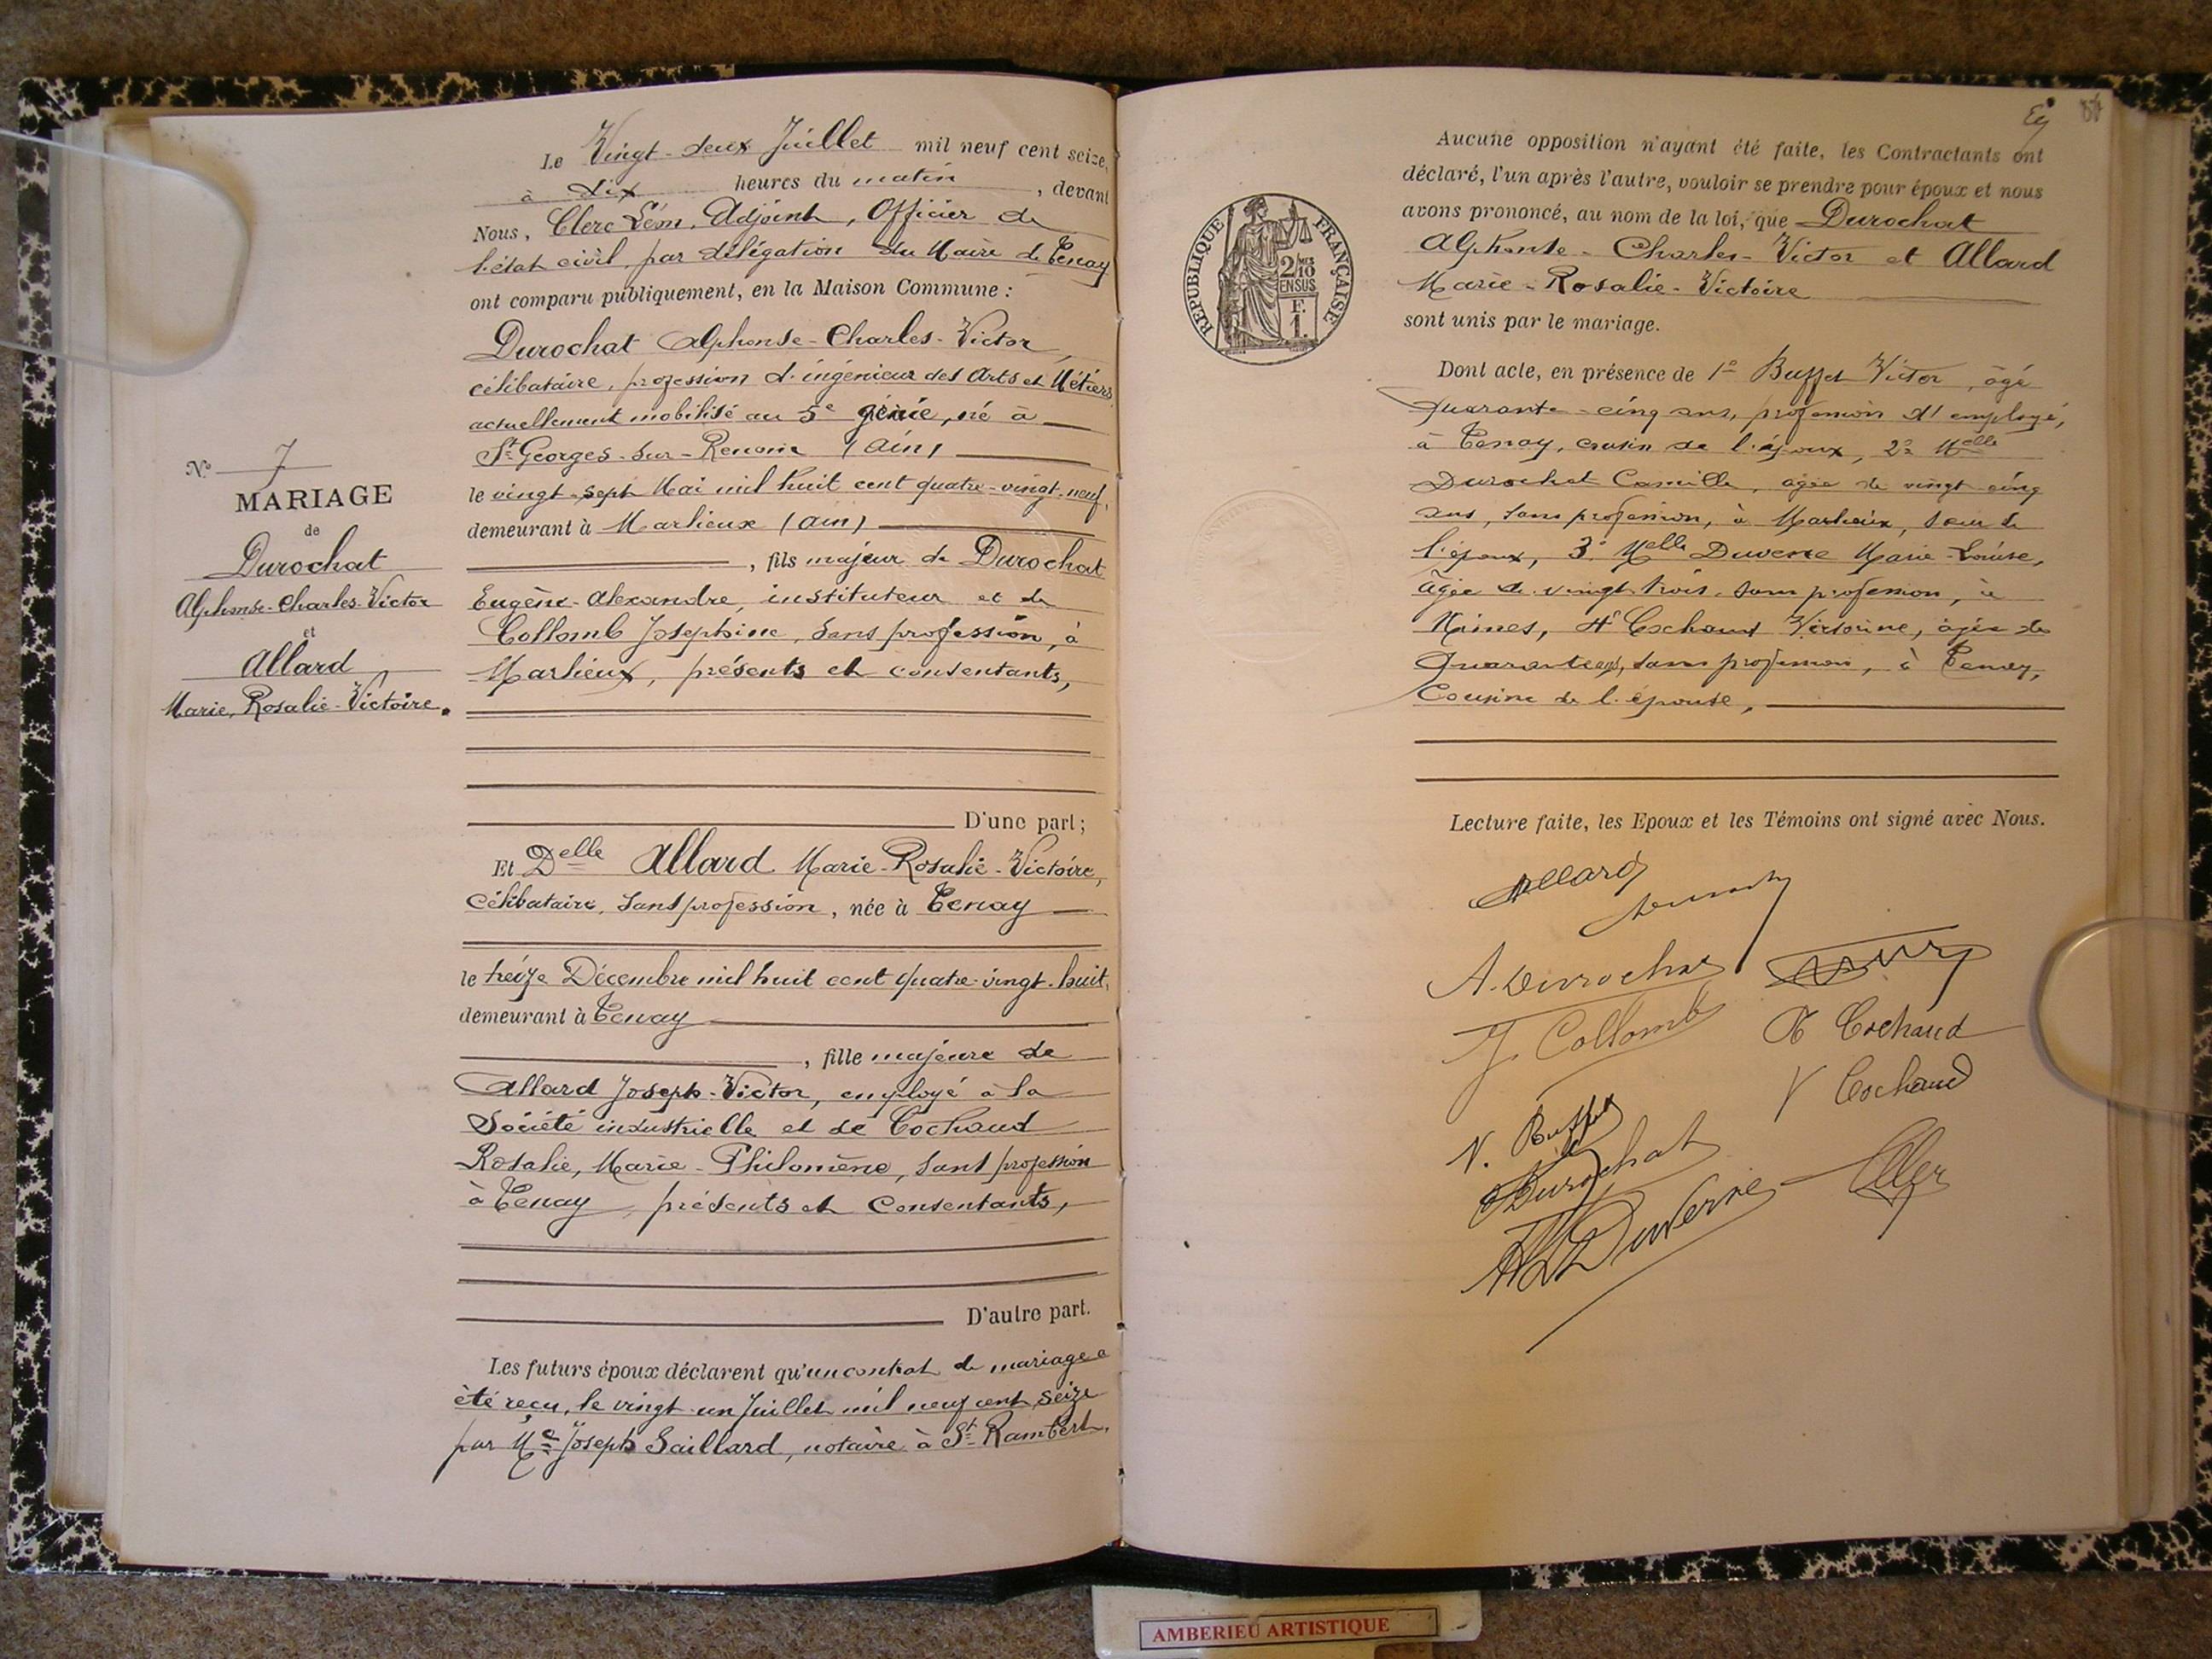 Nº 7
MARIAGE
de
Durochat
Alphonse-Charles-Victor
et
Allard
Marie, Rosalie-Victoire.
Le Vingt-deux Juillet mil neuf cent seize,
à dix heures du matin, devant
Nous, Clerc Léon, Adjoint, Officier de
l'état civil par délégation du Maire de Tenay
ont comparu publiquement, en la Maison Commune :
Durochat Alphonse-Charles-Victor
célibataire, profession d'ingénieur des Arts et Métiers,
actuellement mobilisé au 5e génie, né à
St Georges-sur-Renom (Ain)
le vingt-sept Mai mil huit cent quatre-vingt-neuf,
demeurant à Marlieux (Ain)
, fils majeur de Durochat
Eugène-Alexandre, instituteur et de
Collomb Joséphine, sans profession, à
Marlieux, présents et consentants,
D'une part ;
Et Delle Allard Marie-Rosalie-Victoire,
célibataire, sans profession, née à Tenay
le treize Décembre mil huit cent quatre-vingt-huit,
demeurant à Tenay
, fille majeure de
Allard Joseph-Victor, employé à la
Société industrielle et de Cochaud
Rosalie, Marie-Philomène, sans profession
à Tenay, présents et consentants,
D'autre part.
Les futurs époux déclarent qu'un contrat de mariage a
été reçu, le vingt-un Juillet mil neuf cent seize
par Me Joseph Saillard, notaire à St-Rambert.
86
RÉPUBLIQUE FRANÇAISE
2/10
EN SUS
F.
1.
Aucune opposition n'ayant été faite, les Contractants ont
déclaré, l'un après l'autre, vouloir se prendre pour époux et nous
avons prononcé, au nom de la loi, que Durochat
Alphonse-Charles-Victor et Allard
Marie-Rosalie-Victoire
sont unis par le mariage.
Dont acte, en présence de 1º Buffet Victor, âgé
Quarante-cinq ans, profession d'employé,
à Tenay, cousin de l'époux, 2º Melle
Durochat Camille, âgée de vingt-cinq
ans, sans profession, à Marlieux, sœur de
l'époux, 3º Melle Duverne Marie-Louise,
âgée de vingt-trois, sans profession, à
Nîmes, 4º Cochaud Victorine, âgée de
Quarante ans, sans profession, à Tenay,
Cousine de l'épouse,
Lecture faite, les Epoux et les Témoins ont signé avec Nous.
Allard
A. Durochat
J. Collomb
R Cochaud
V Cochaud
V. Buffet
Durochat
ML Duverne
AMBERIEU ARTISTIQUE